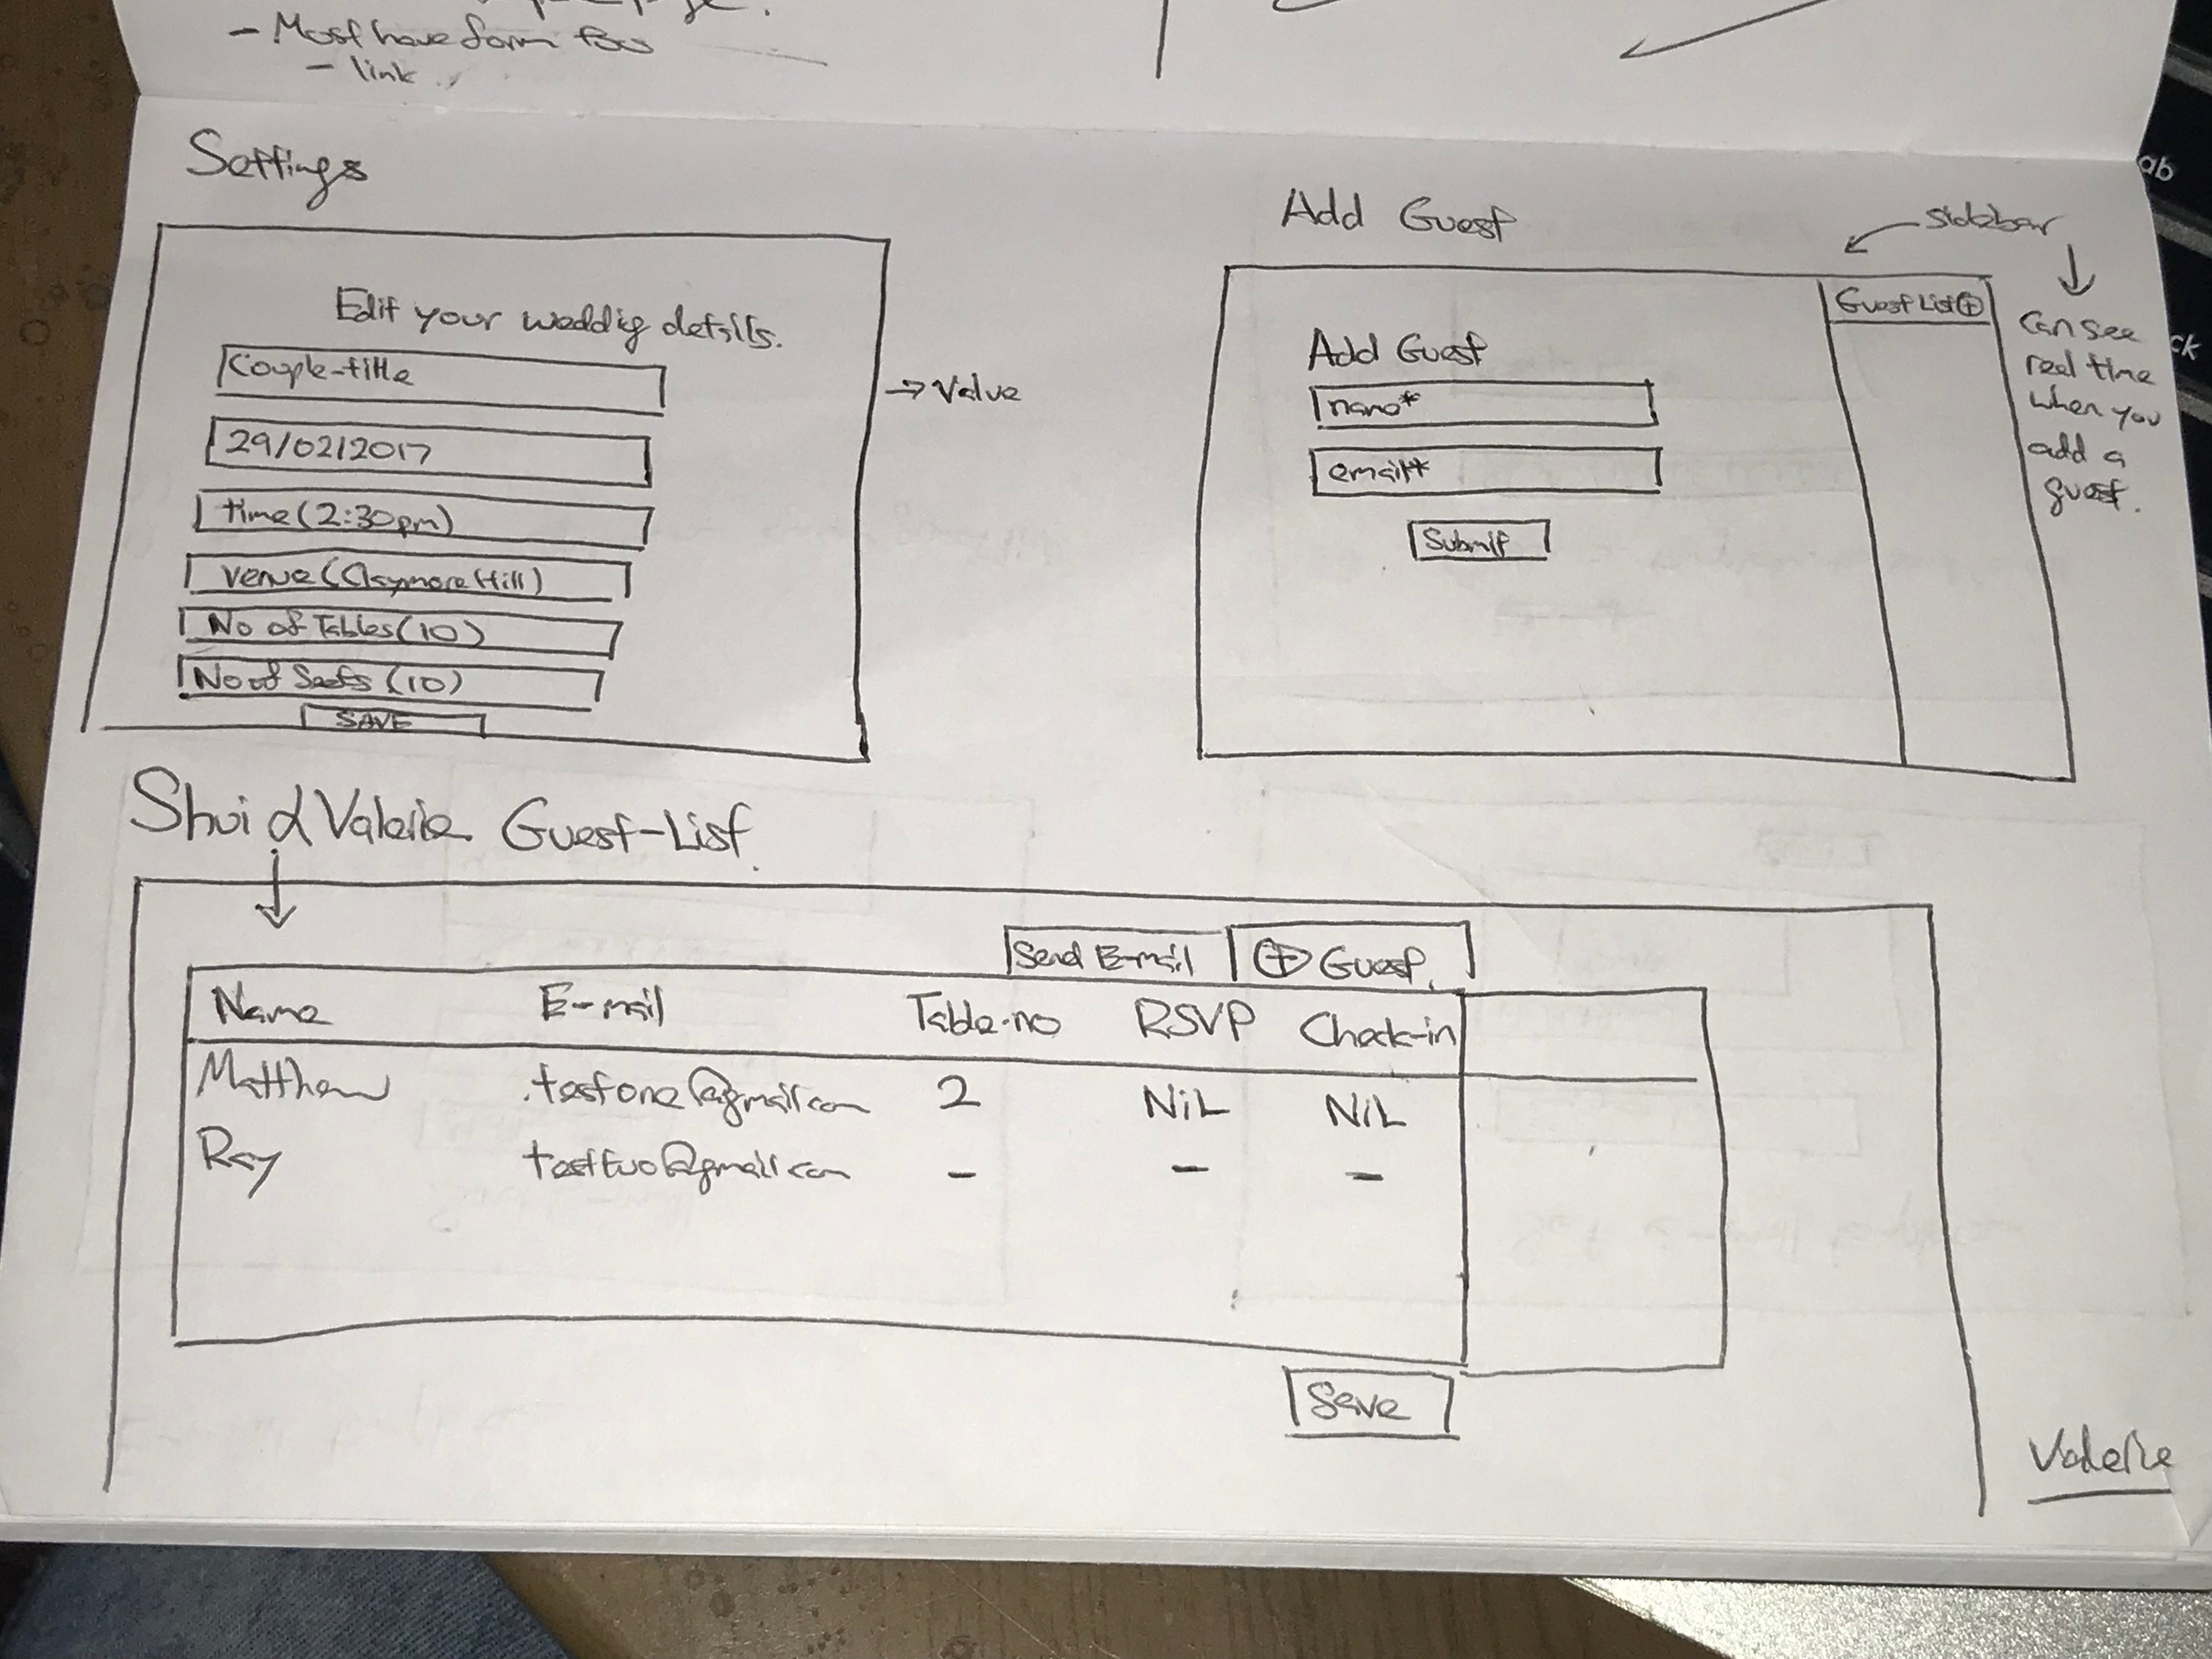 - Must have form for
- link
Settings
Edit your weddig details.
Couple-title
29/02/2017
time (2:30pm)
Venue (Claymore Hill)
No of Tables (10)
No of Seats (10)
SAVE
→ Value
Add Guest
sidebar
Guest List +
Add Guest
name*
email*
Submit
Can see
real time
when you
add a
guest.
Shui & Valerie Guest-List.
Send E-mail + Guest.
Name E-mail Table-no RSVP Check-in
Matthew testone@gmail.com 2 NiL NiL
Ray testtwo@gmail.com - - -
Save
Valerie
ab
ck